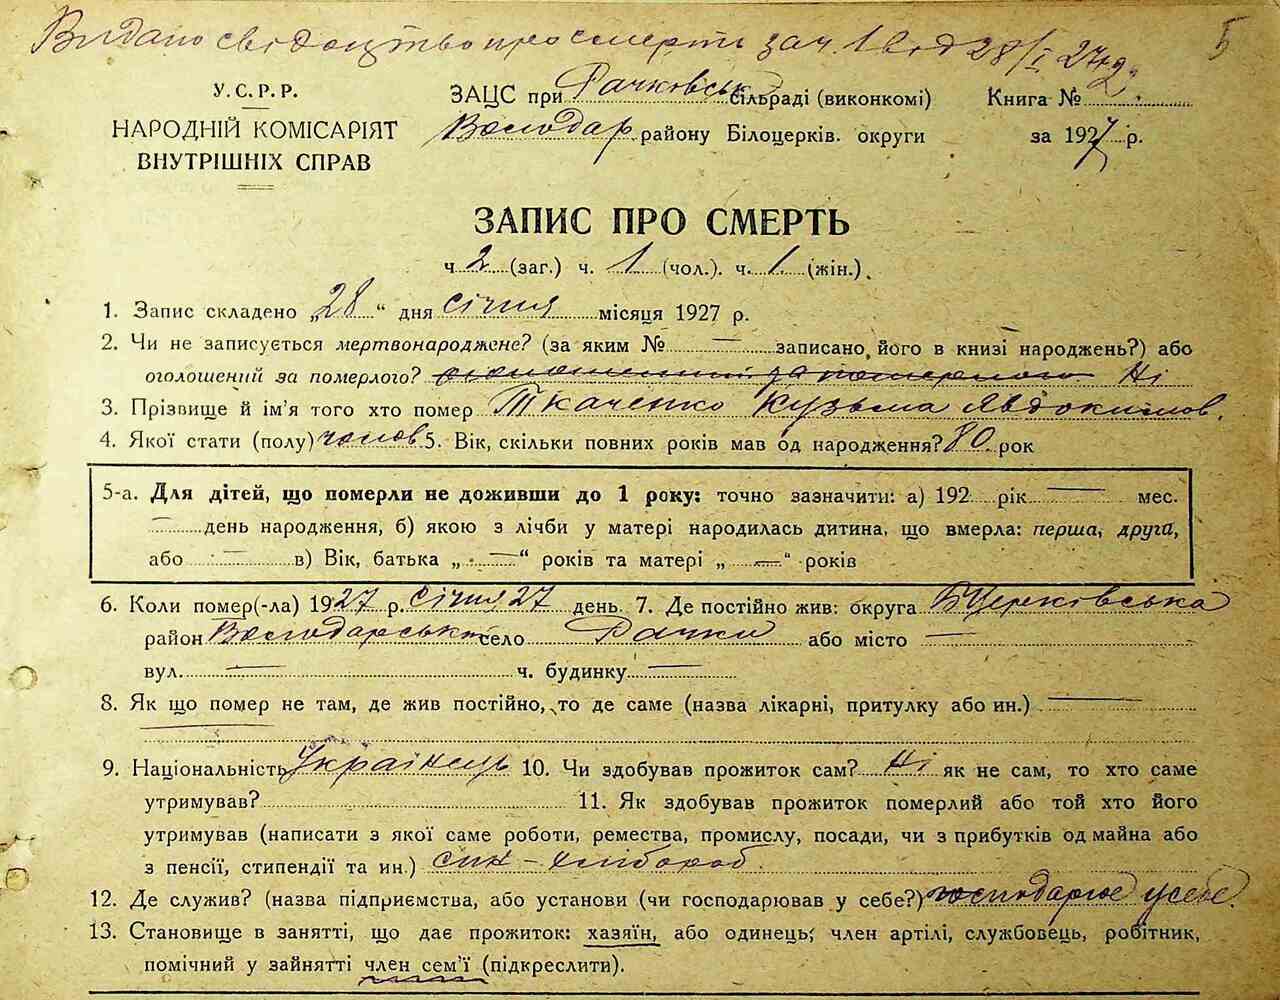 Видано свідоцтво про смерть за ч. 1 від 28/I 27 р.
5
У.С.Р.Р.
НАРОДНІЙ КОМІСАРІЯТ
ВНУТРІШНІХ СПРАВ
ЗАЦС при Рачковськ сільраді (виконкомі)
Володар. району Білоцерків. округи
Книга № 2.
за 1927 р.
ЗАПИС ПРО СМЕРТЬ
ч 2 (заг.) ч. 1 (чол.). ч. 1 (жін.).
1. Запис складено „28“ дня січня місяця 1927 р.
2. Чи не записується мертвонароджене? (за яким № — записано його в книзі народжень?) або
оголошений за померлого? Ні
3. Прізвище й ім'я того хто помер Ткаченко Кузьма Явдокимов.
4. Якої стати (полу) чолов 5. Вік, скільки повних років мав од народження? 80 рок
5-а. Для дітей, що померли не доживши до 1 року: точно зазначити: а) 192 рік — мес.
— день народження, б) якою з лічби у матері народилась дитина, що вмерла: перша, друга,
або — в) Вік, батька „ — “ років та матері „ — “ років
6. Коли помер(-ла) 1927 р. січня 27 день. 7. Де постійно жив: округа БЦерківська
район Володарськ село Рачки або місто —
вул. — ч. будинку —
8. Як що помер не там, де жив постійно, то де саме (назва лікарні, притулку або ин.) —
9. Національність Українець 10. Чи здобував прожиток сам? Ні як не сам, то хто саме
утримував? 11. Як здобував прожиток померлий або той хто його
утримував (написати з якої саме роботи, ремества, промислу, посади, чи з прибутків од майна або
з пенсії, стипендії та ин.) син - хлібороб.
12. Де служив? (назва підприємства, або установи (чи господарював у себе?) господарює у себе.
13. Становище в занятті, що дає прожиток: хазяїн, або одинець; член артілі, службовець, робітник,
помічний у зайнятті член сем'ї (підкреслити).